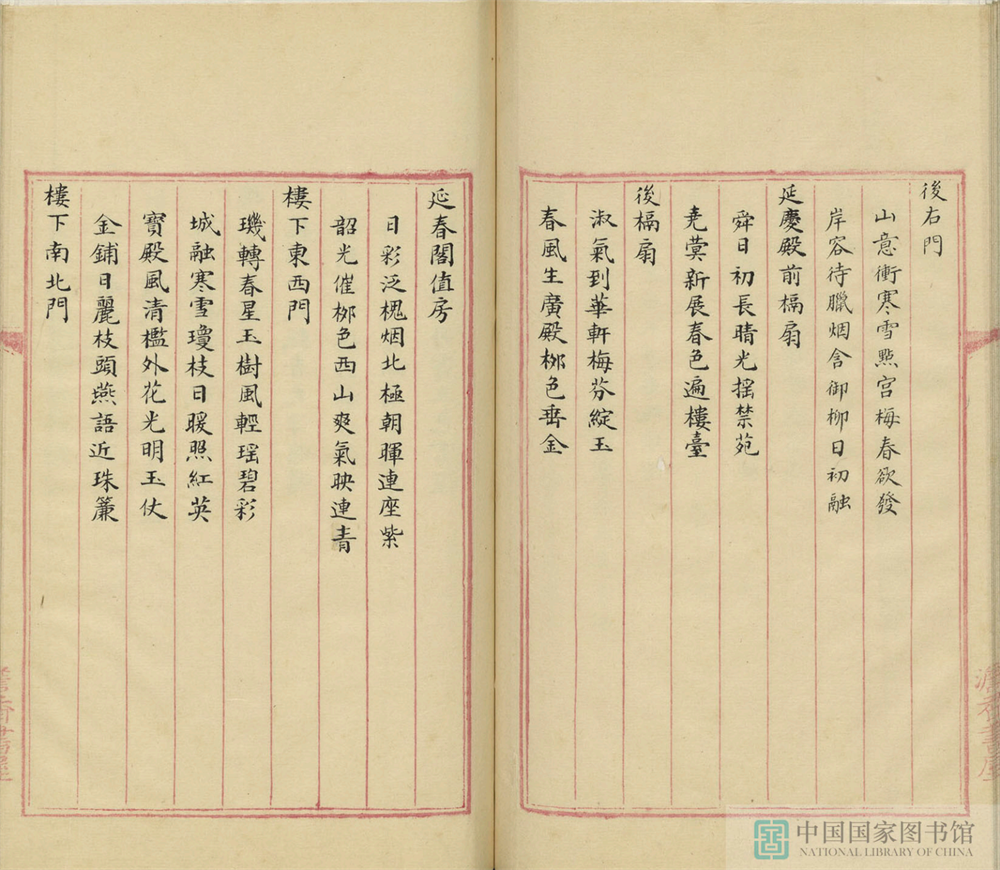 後右門
山意衝寒雪點宮梅春欲發
岸容待臘烟含御柳日初融
延慶殿前槅扇
舜日初長晴光摇禁苑
堯蓂新展春色遍樓臺
後槅扇
淑氣到華軒梅芬綻玉
春風生廣殿栁色垂金
延春閣值房
日彩泛槐烟北極朝暉連座紫
韶光催栁色西山爽氣映連青
樓下東西門
璣轉春星玉樹風輕瑶碧彩
城融寒雪瓊枝日暖照紅英
寶殿風清檻外花光明玉仗
金鋪日麗枝頭燕語近珠簾
樓下南北門
中国国家图书馆
NATIONAL LIBRARY OF CHINA